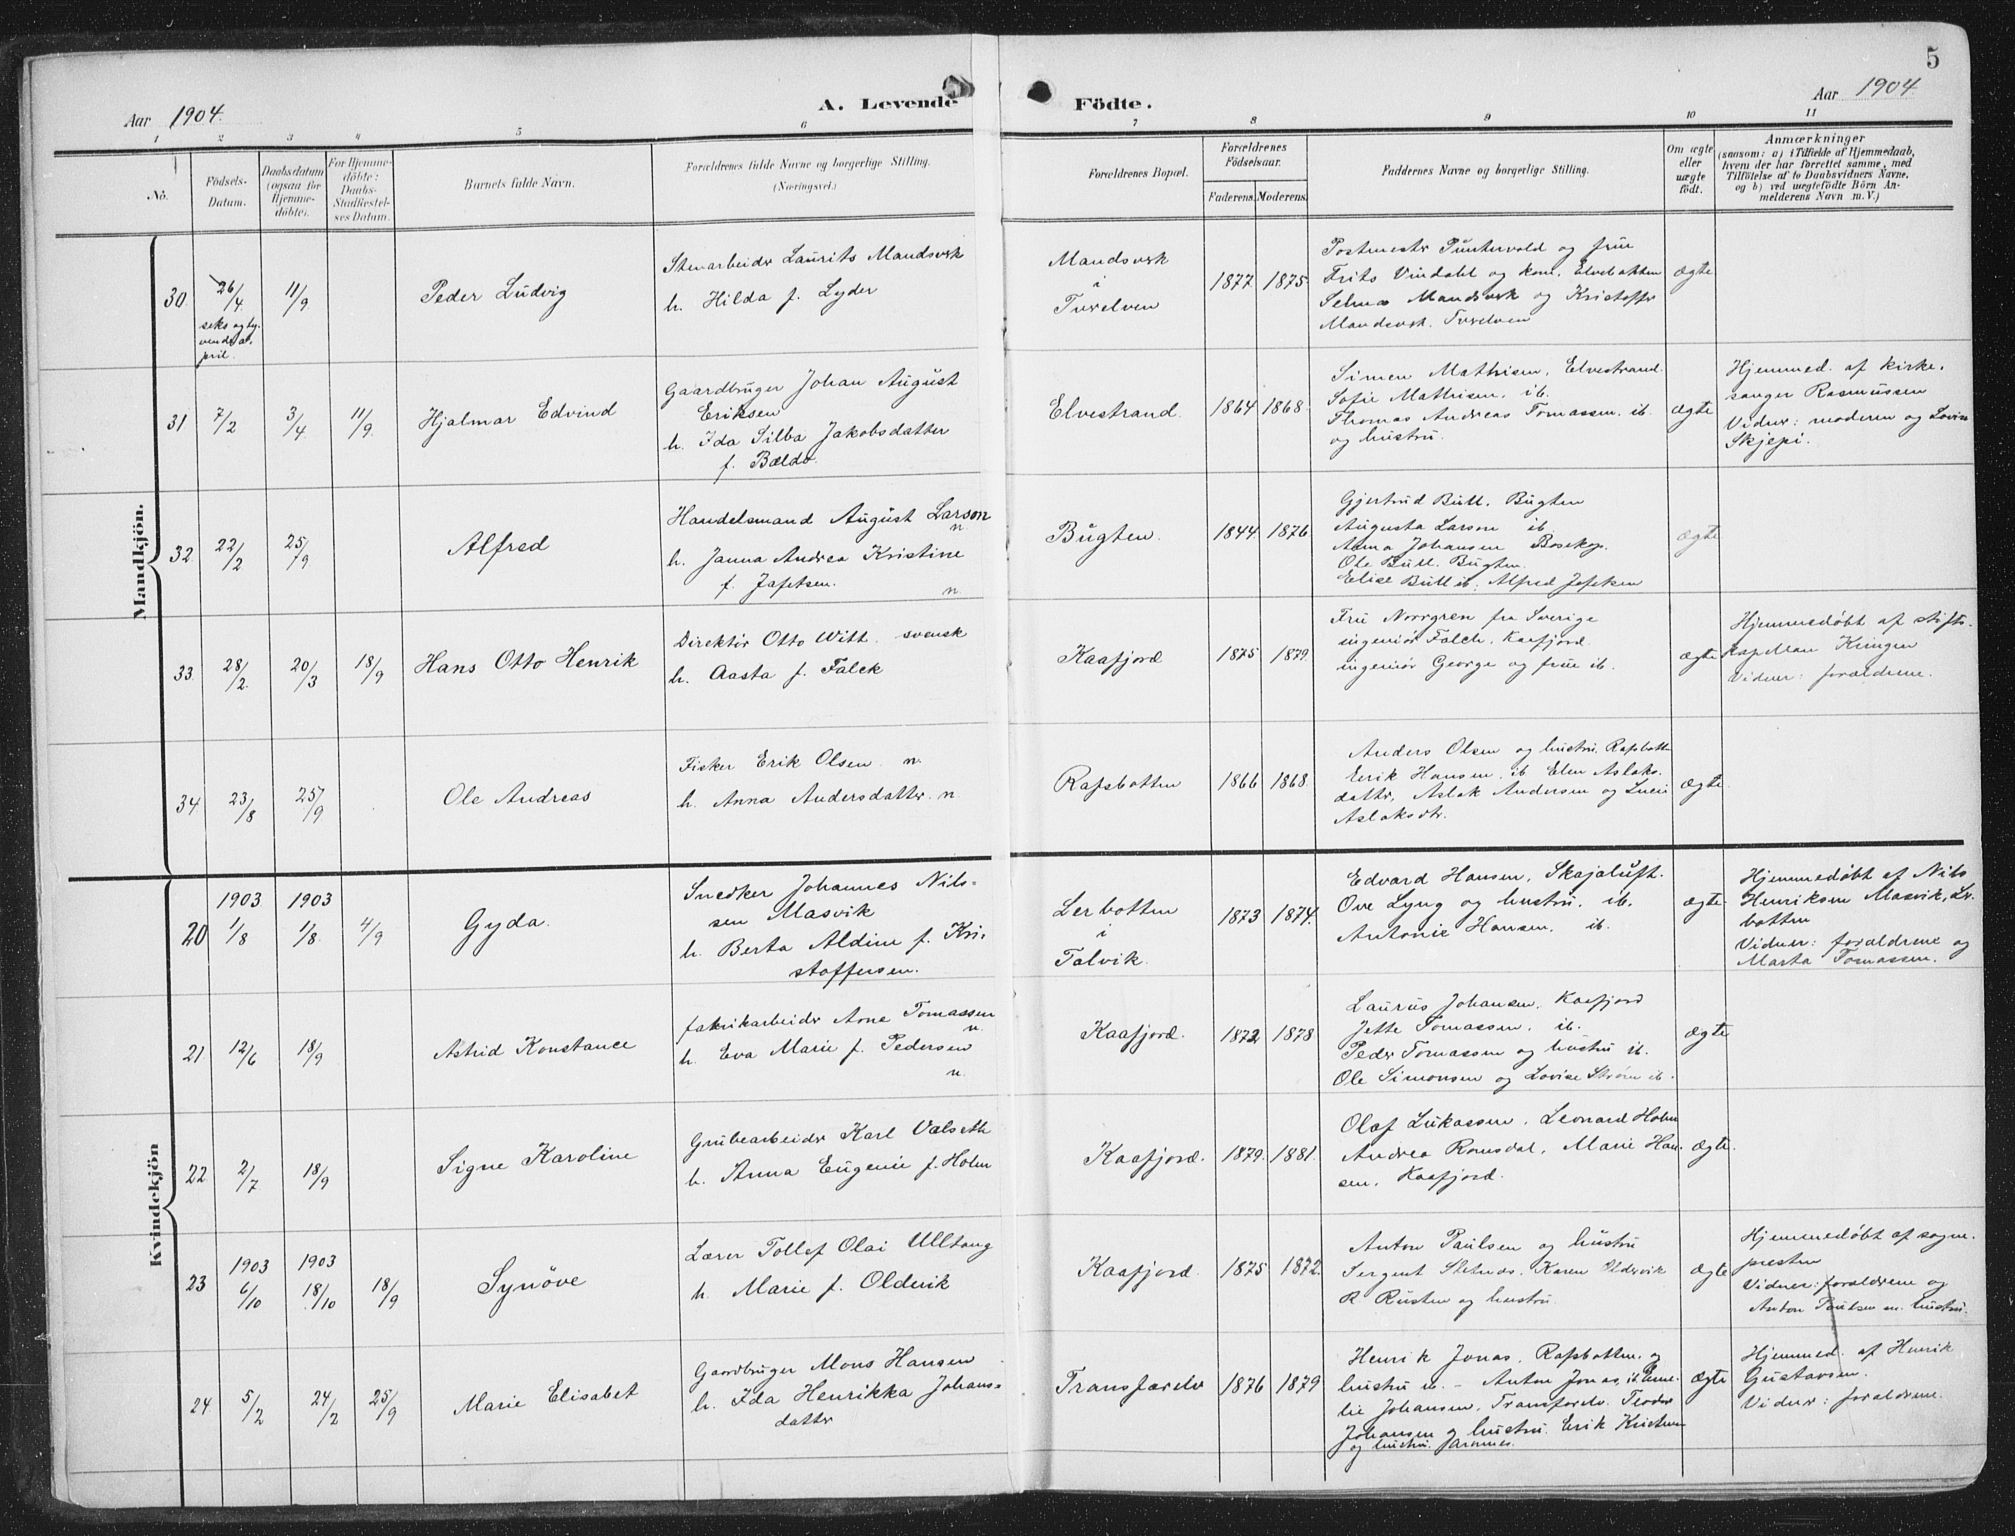 5
Aar 1904.
A. Levende Födte.
Aar 1904
1 2 3 4 5 6 7 8 9 10 11
No.
Födsels-
Datum.
Daabsdatum
(ogsaa for
Hjemme-
döbte).
For Hjemme-
döbte:
Daabs-
Stadfæstel-
ses Datum.
Barnets fulde Navn.
Forældrenes fulde Navne og borgerlige Stilling.
(Næringsvei.)
Forældrenes Bopæl.
Forældrenes
Födselsaar.
Faderens. Moderens.
Faddernes Navne og borgerlige Stilling.
Om ægte
eller
uægte
födt.
Anmærkninger
(saasom: a) i Tilfælde af Hjemmedaab,
hvem der har forrettet samme, med
Tilföielse af to Daabsvidners Navne,
og b) ved uægtefödte Börn An-
melderens Navn m. V.)
Mandkjön.
30.
26/4.
seks og ty-
vende a-
pril.
11/9
Peder Ludvig
Stenarbeider Laurits Mandsverk
h. Hilda f. Lyder
Mandsverk
i
Tverelven
1877 1875.
Postmester Puntervold og frue
Frits Vindahl og kone, Elvebakken
Selma Mandsverk og Kristoffer
Mandsverk. Tverelven
ægte
31
7/2
3/4
11/9.
Hjalmar Edvind
Gaardbruger Johan August
Eriksen
h. Ida Silba Jakobsdatter
f. Bældo.
Elvestrand.
1864 1868.
Simen Mathisen, Elvestrand
Sofie Mathisen, ib.
Thomas Andreas Tomassen, ib.
og hustru.
ægte
Hjemmed. af kirke-
sanger Rasmussen
Vidner: moderen og Lovise
Skjepi.
32.
22/2
25/9
Alfred
Handelsmand August Larson
n
h. Janna Andrea Kristine
f. Jafetsen.
n.
Bugten.
1844. 1876
Gjertrud Bull, Bugten
Augusta Larson ib.
Anna Johansen Bosekop.
Ole Bull. Bugten.
Elise Bull ib. Alfred Jafetsen
ægte
33.
28/2.
20/3
18/9
Hans Otto Henrik
Direktör Otto Witt. svensk
h. Aasta f. Falck
Kaafjord
1875 1879.
Fru Norrgren fra Sverige
ingeniör Falck, Kaafjord.
ingeniör George og frue ib.
ægte
Hjemmedøbt af stifts-
kapellan Kringen
Vidner: forældrene.
34.
23/8
25/9
Ole Andreas
Fisker Erik Olsen. n.
h. Anna Andersdatter. n
Rafsbotten
1866 1868.
Anders Olsen og hustru, Rafsbotten
Eerik Hansen, ib Elen Aslaks-
datter, Aslak Andersen og Lucie
Aslaksdtr.
ægte.
Kvindekjön
20
1903
1/8
1903
1/8.
4/9
Gyda.
Snedker Johannes Nils-
sen Masvik
h. Berta Aldine f. Kri-
stoffersen.
Lerbotten
i
Talvik.
1873 1874.
Edvard Hansen, Skajaluft.
Ove Lyng og hustru, ib.
Antonie Hansen, ib.
ægte
Hjemmedøbt af Nils
Henriksen Masvik, Ler-
botten
Vidner: forældrene og
Marta Tomassen.
21
12/6
18/9
Astrid Konstance
fabrikarbeider Arne Tomassen
n.
h. Eva Marie f. Pedersen
n.
Kaafjord.
1872 1878
Laurus Johansen, Kaafjord
Jette Tomassen, ib.
Peder Tomassen og hustru ib.
Ole Simonsen og Lovise Strøm ib.
ægte
22
2/7.
18/9
Signe Karoline
Grubearbeider Karl Valseth
h. Anna Eugenie f. Holm
Kaafjord.
1879. 1881.
Olaf Lukassen, Leonard Holm
Andrea Romsdal, Marie Han-
sen, Kaafjord.
ægte.
23
1903
6/10
1903
18/10
18/9
Synöve
Lærer Tollef Olai Ulltang
h. Marie f. Oldervik
Kaafjord.
1875 1872.
Anton Paulsen og hustru
Sergent Stelnds. Karen Oldervik
R Rusten og hustru.
ægte
Hjemmedøbt af sogne-
presten
Vidner: forældrene og
Anton Paulsen m. hustru.
24
5/2
24/2
25/9
Marie Elisabet
Gaardbruger Mons Hansen
h. Ida Henrikka Johans-
datter
Transfarelv
1876 1879
Henrik Jonas, Rafsbotten. og
hustru ib. - Anton Jonas, ib. Ama-
lie Johansen, Transfarelv. Teodor
Johansen og hustru. Erik Kristensen
og hustru.
ægte
Hjemmed. af Henrik
Gustavsen.
Vidner: forældrene.